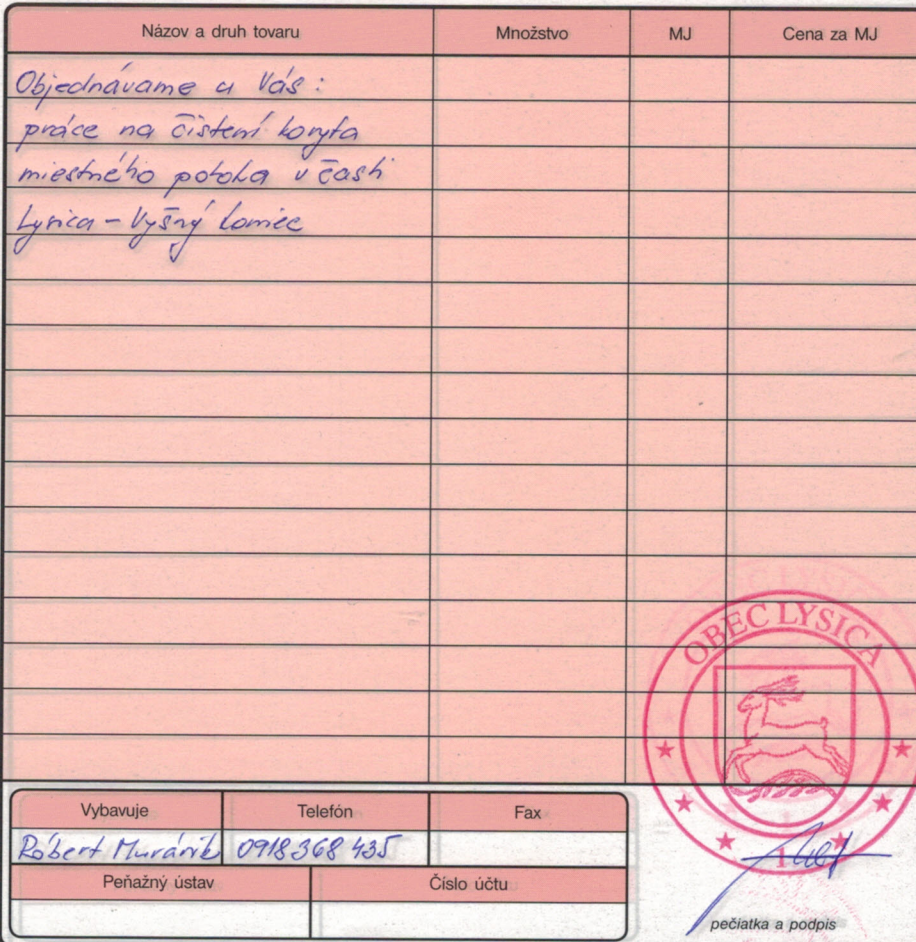 Názov a druh tovaru Množstvo MJ Cena za MJ
Objednávame u Vás:
práce na čistení koryta
miestného potoka v časti
Lysica - Vyšný koniec
OBEC LYSICA
1
Vybavuje Telefón Fax
Róbert Muránik 0918 368 435
Peňažný ústav Číslo účtu
pečiatka a podpis